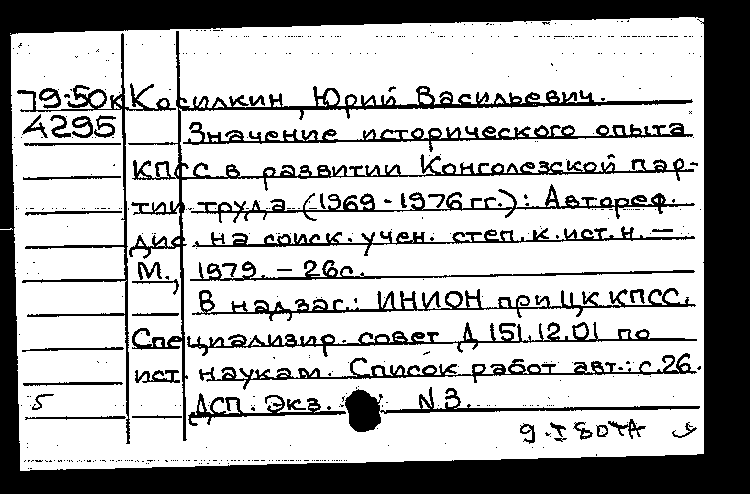 79:50к Косилкин, Юрий Васильевич.
4295 Значение исторического опыта
КПСС в развитии Конголезской пар-
тии труда (1969-1976 гг.): Автореф.
дис. на соиск. учен. степ. к.ист.н. —
М., 1979. — 26с.
В надзаг.: ИНИОН при ЦК КПСС.
Специализир. совет Д 151.12.01 по
ист. наукам. Список работ авт.: с.26.
5 ДСП. Экз. N.3.